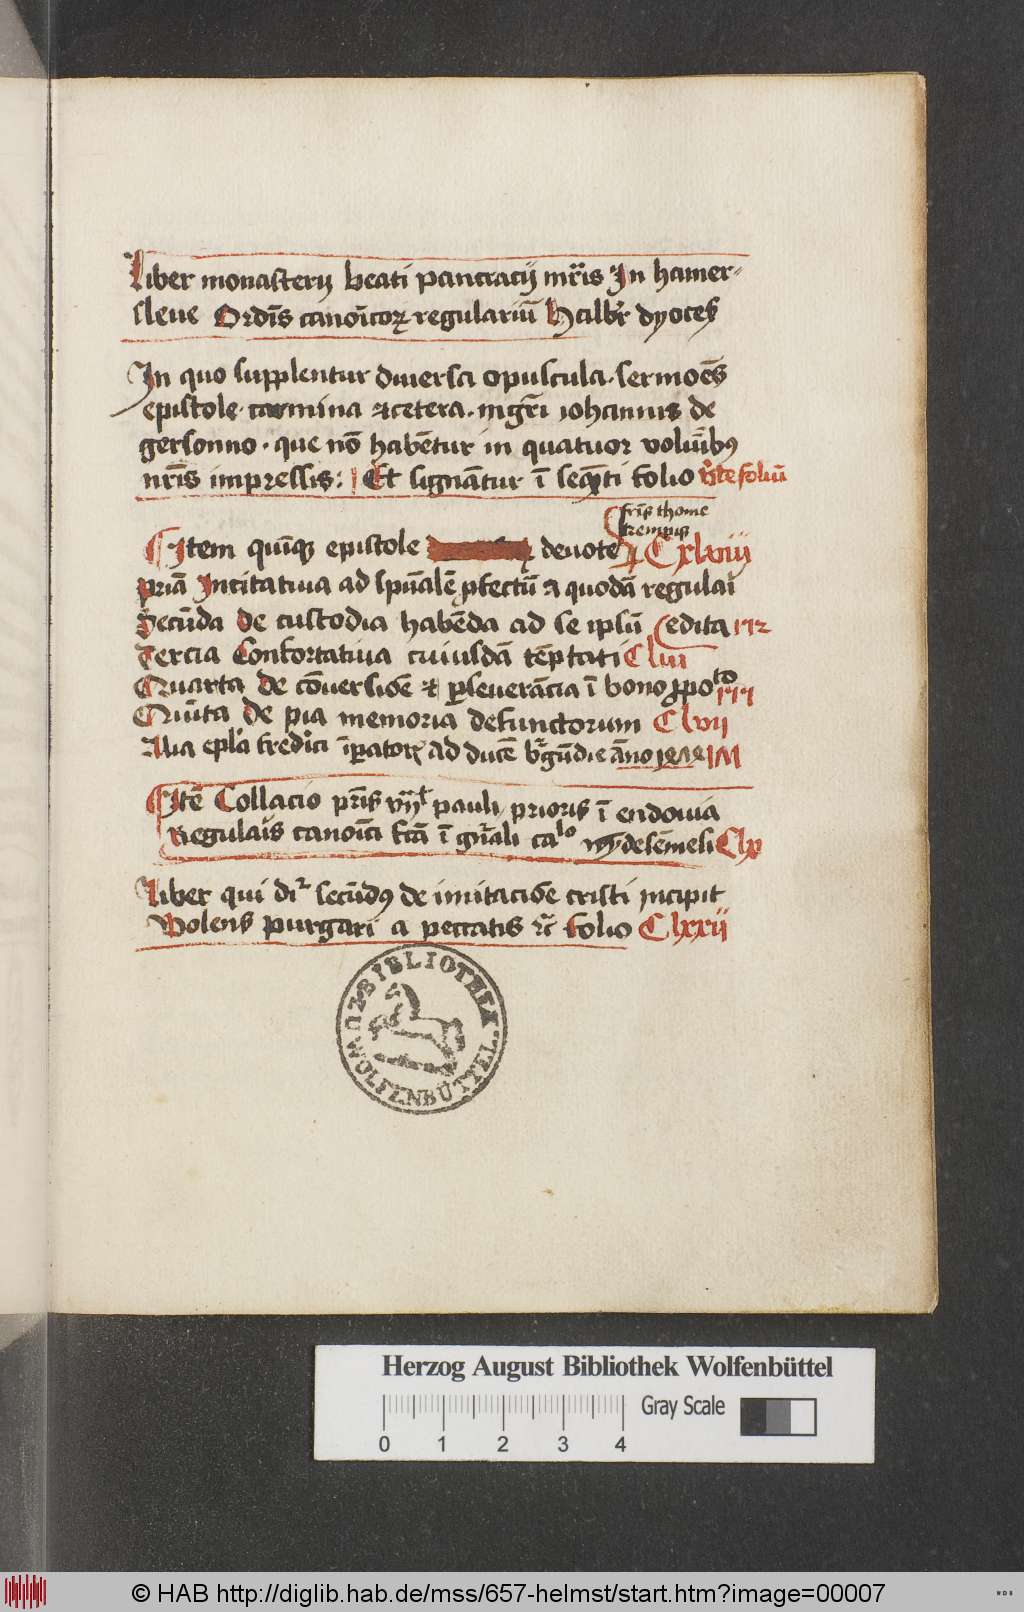 Liber monasterij beati pancracij mr̄is In hamer-
sleue Ordīs canoīcoꝝ regulariū Halbr̄ dyoceß
In quo supplentur diuersa opuscula. sermoēs
epistole. carmina ⁊cetera. mgr̄i iohannis de
gersonno. que nō habētur in quatuor volūībꝰ
nr̄is impressis: Et signātur ī seqn̄ti folio v̓te foliū
frīs thome
kempis
Item quīqꝫ epistole deuote Cxlviij
Pria Incitatiua ad spūalē ꝓfectū a quodā regulai
Secūda De custodia habēda ad se ipsū edita
Tercia Confortatiua cuiusdā tēptati
Quarta De cōuersiōe ⁊ ꝑseuerācia ī bono ꝓpoto
Quīta de pia memoria defunctorum Clvij
Alia epla fredici īꝑatorꝭ ad ducē bꝰgūdie āno
Itē Collacio pr̄is pauli prioris ī endouia
Regulaīs canoīci fcā ī gn̄ali calo Clx
Liber qui dr̄ secūdꝰ de imitaciōe cristi incipit
Volens purgari a peccatis ⁊c̄ folio Clxxij
BIBLIOTHEK
ZU WOLFENBÜTTEL.
Herzog August Bibliothek Wolfenbüttel
Gray Scale
0 1 2 3 4
© HAB http://diglib.hab.de/mss/657-helmst/start.htm?image=00007